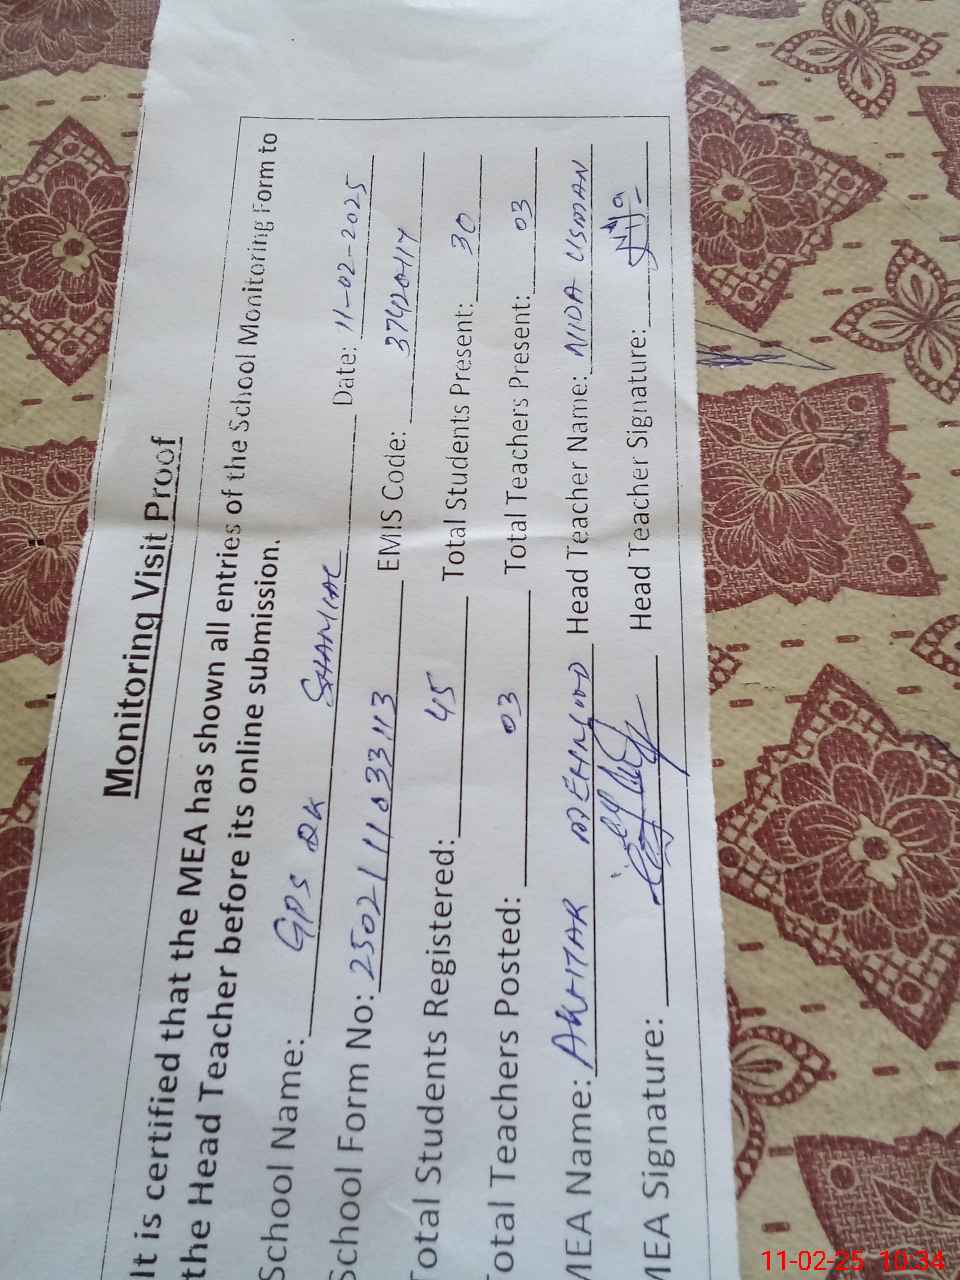 Monitoring Visit Proof
It is certified that the MEA has shown all entries of the School Monitoring Form to
the Head Teacher before its online submission.
School Name: GPS DK SHAMLAL Date: 11-02-2025
School Form No: 25021 11033113 EMIS Code: 37420117
Total Students Registered: 45 Total Students Present: 30
Total Teachers Posted: 03 Total Teachers Present: 03
MEA Name: AKHTAR MEHMOOD Head Teacher Name: NIDA USMAN
MEA Signature: Head Teacher Signature:
11-02-25 10:34